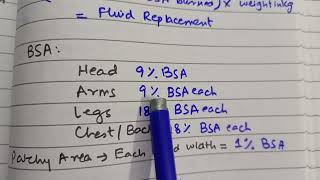 BSA burned) x weight in kg
= Fluid Replacement
BSA:
Head 9% BSA
Arms 9% BSA each
Legs 18% BSA each
Chest/Back 18% BSA each
Parchy Area → Each width = 1% BSA